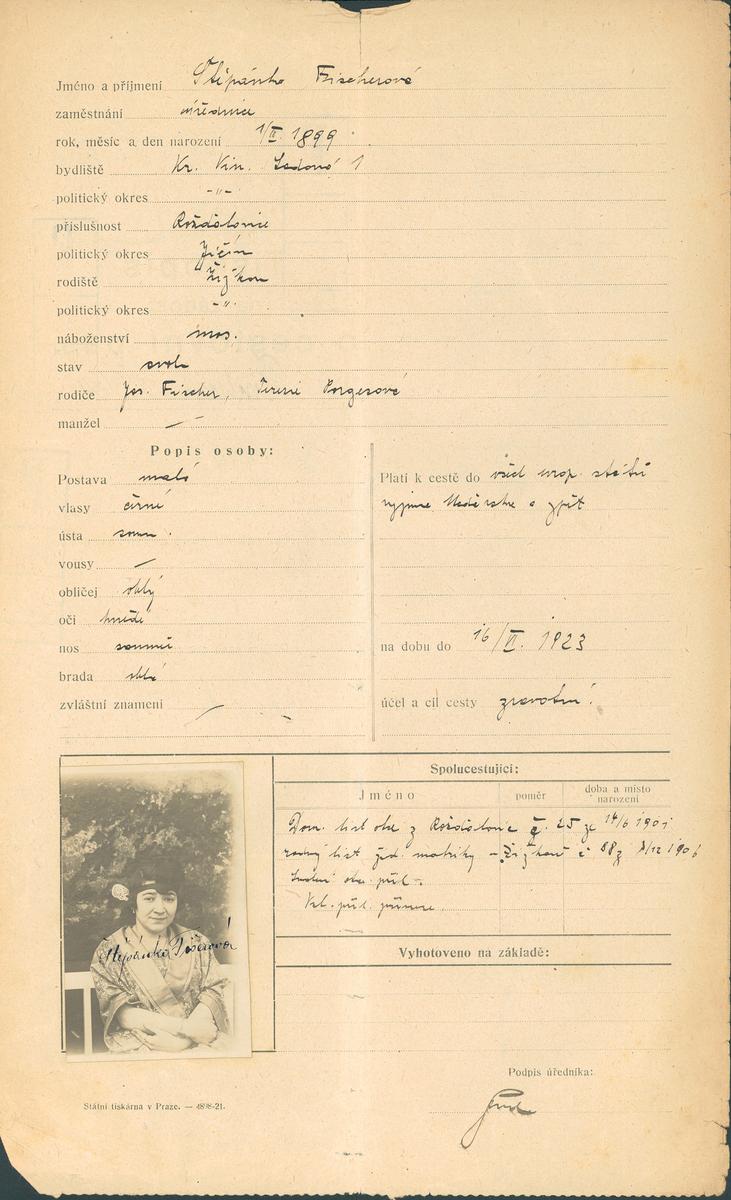 Jméno a příjmení Štěpánka Fischerová
zaměstnání úřednice
rok, měsíc a den narození 1/II. 1899
bydliště Kr. Vin. Sadová 1
politický okres -"-
příslušnost Rožďalovice
politický okres Jičín
rodiště Žižkov
politický okres -"-
náboženství mos.
stav svob.
rodiče Jos. Fischer, Terezie Porgesová
manžel —
Popis osoby:
Postava malá
vlasy černé
ústa soum.
vousy —
obličej oblý
oči hnědé
nos souměr.
brada oblá
zvláštní znamení —
Platí k cestě do všech evrop. států
vyjma Maďarska a zpět
na dobu do 16/VI. 1923
účel a cíl cesty zdravotní.
Spolucestující:
Jméno poměr doba a místo narození
Dom. list obce z Rožďalovic č. 25 ze 14/6 1901
rodný list žid. matriky Žižkov č 88 z 1906
Vyhotoveno na základě:
Štěpánka Fišerová
Podpis úředníka:
Státní tiskárna v Praze. — 4898-21.